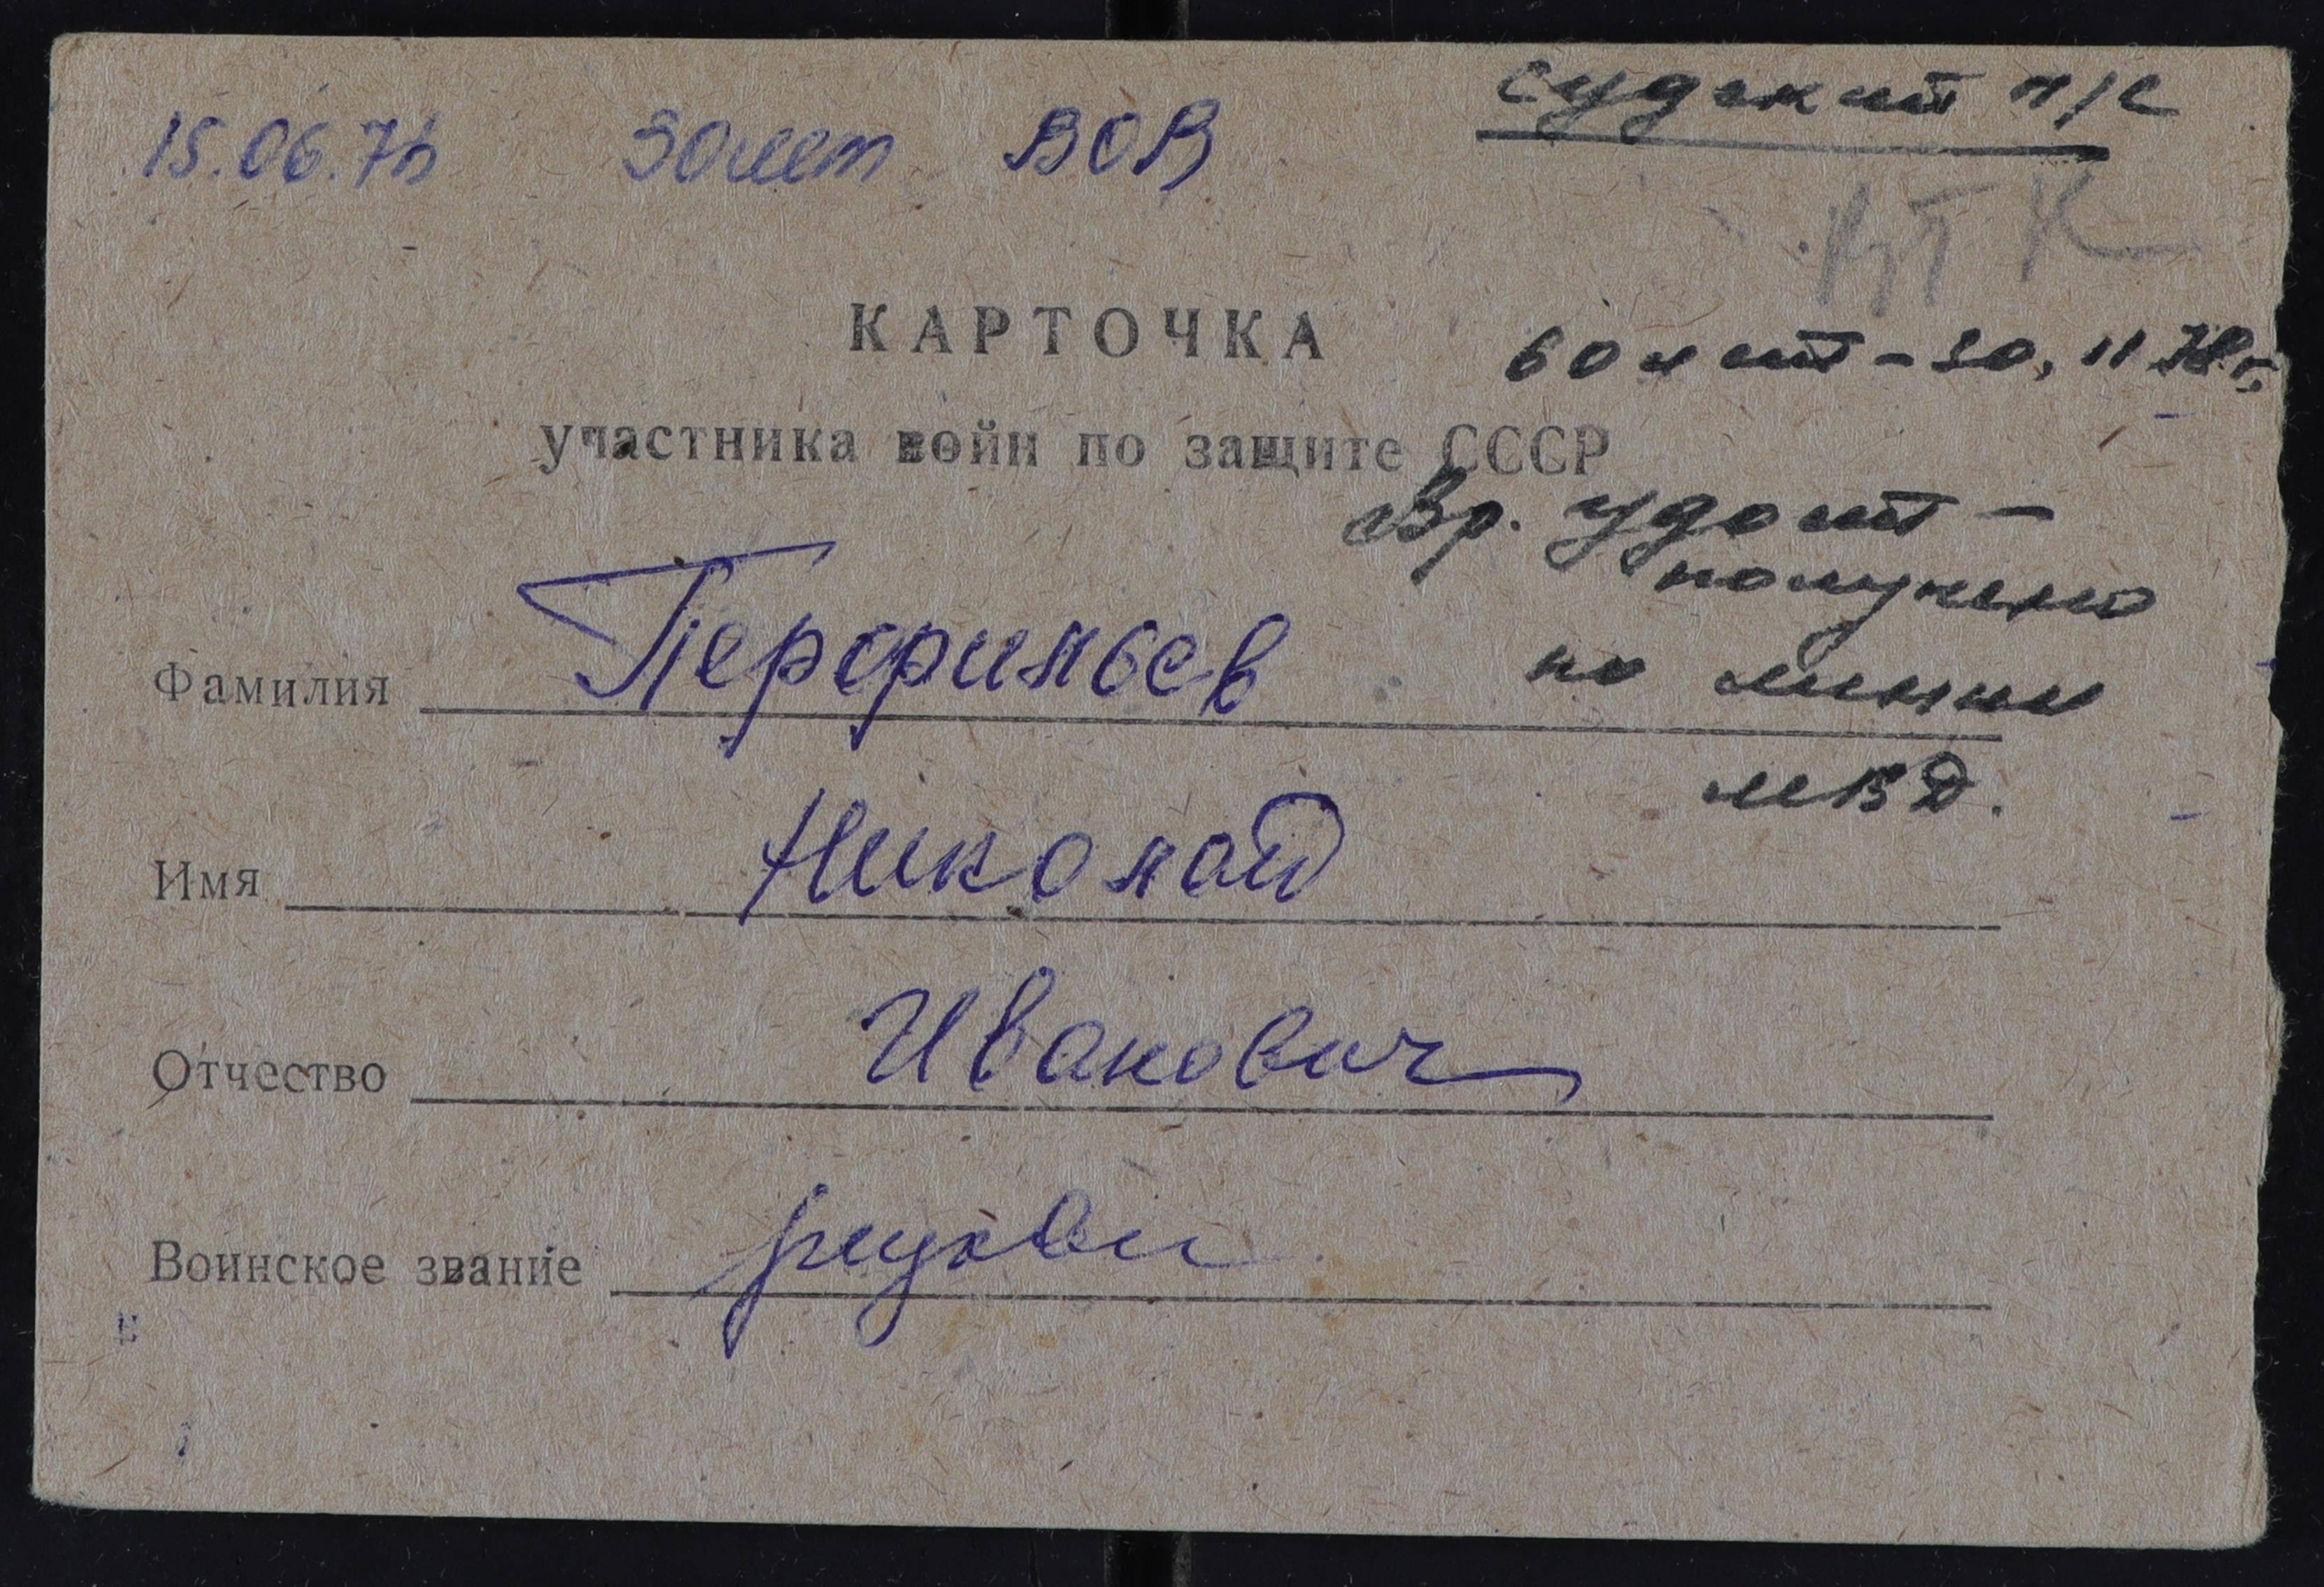 15.06.76 30 лет ВОВ
п/с
ВТК
КАРТОЧКА
60 лет - 30.11.78 г.
участника войн по защите СССР
Вр. удост -
получено
Фамилия Перфильев
по линии
МВД.
Имя Николай
Отчество Иванович
Воинское звание